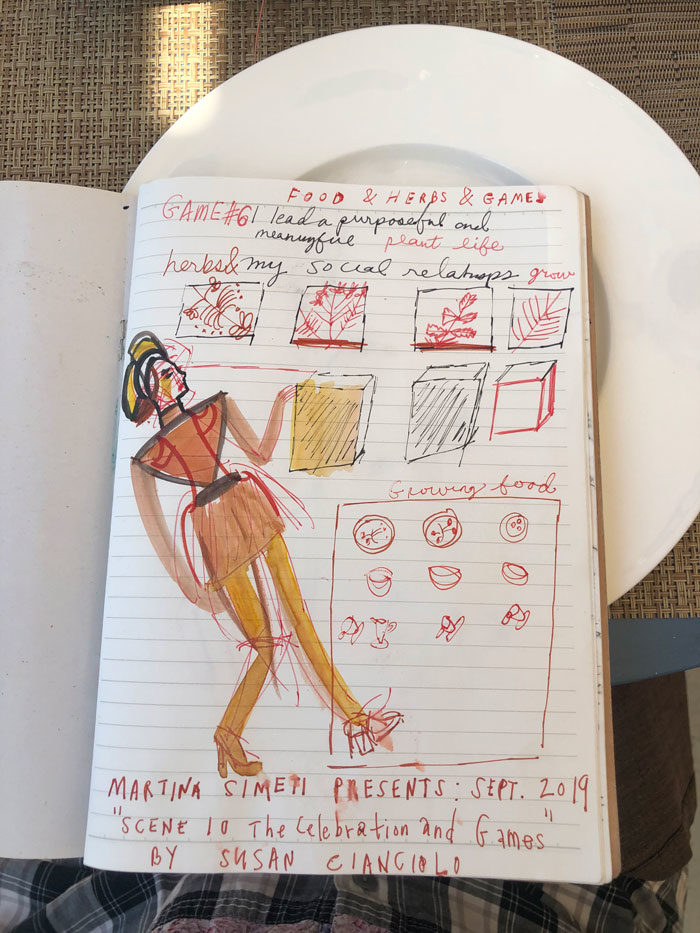 FOOD & HERBS & GAMES
GAME#6 I lead a purposeful and
meaningful plant life
herbs& my social relatnops grow
Growing food
MARTINA SIMETI PRESENTS: SEPT. 2019
"SCENE 10 The Celebration and Games"
BY SUSAN CIANCIOLO